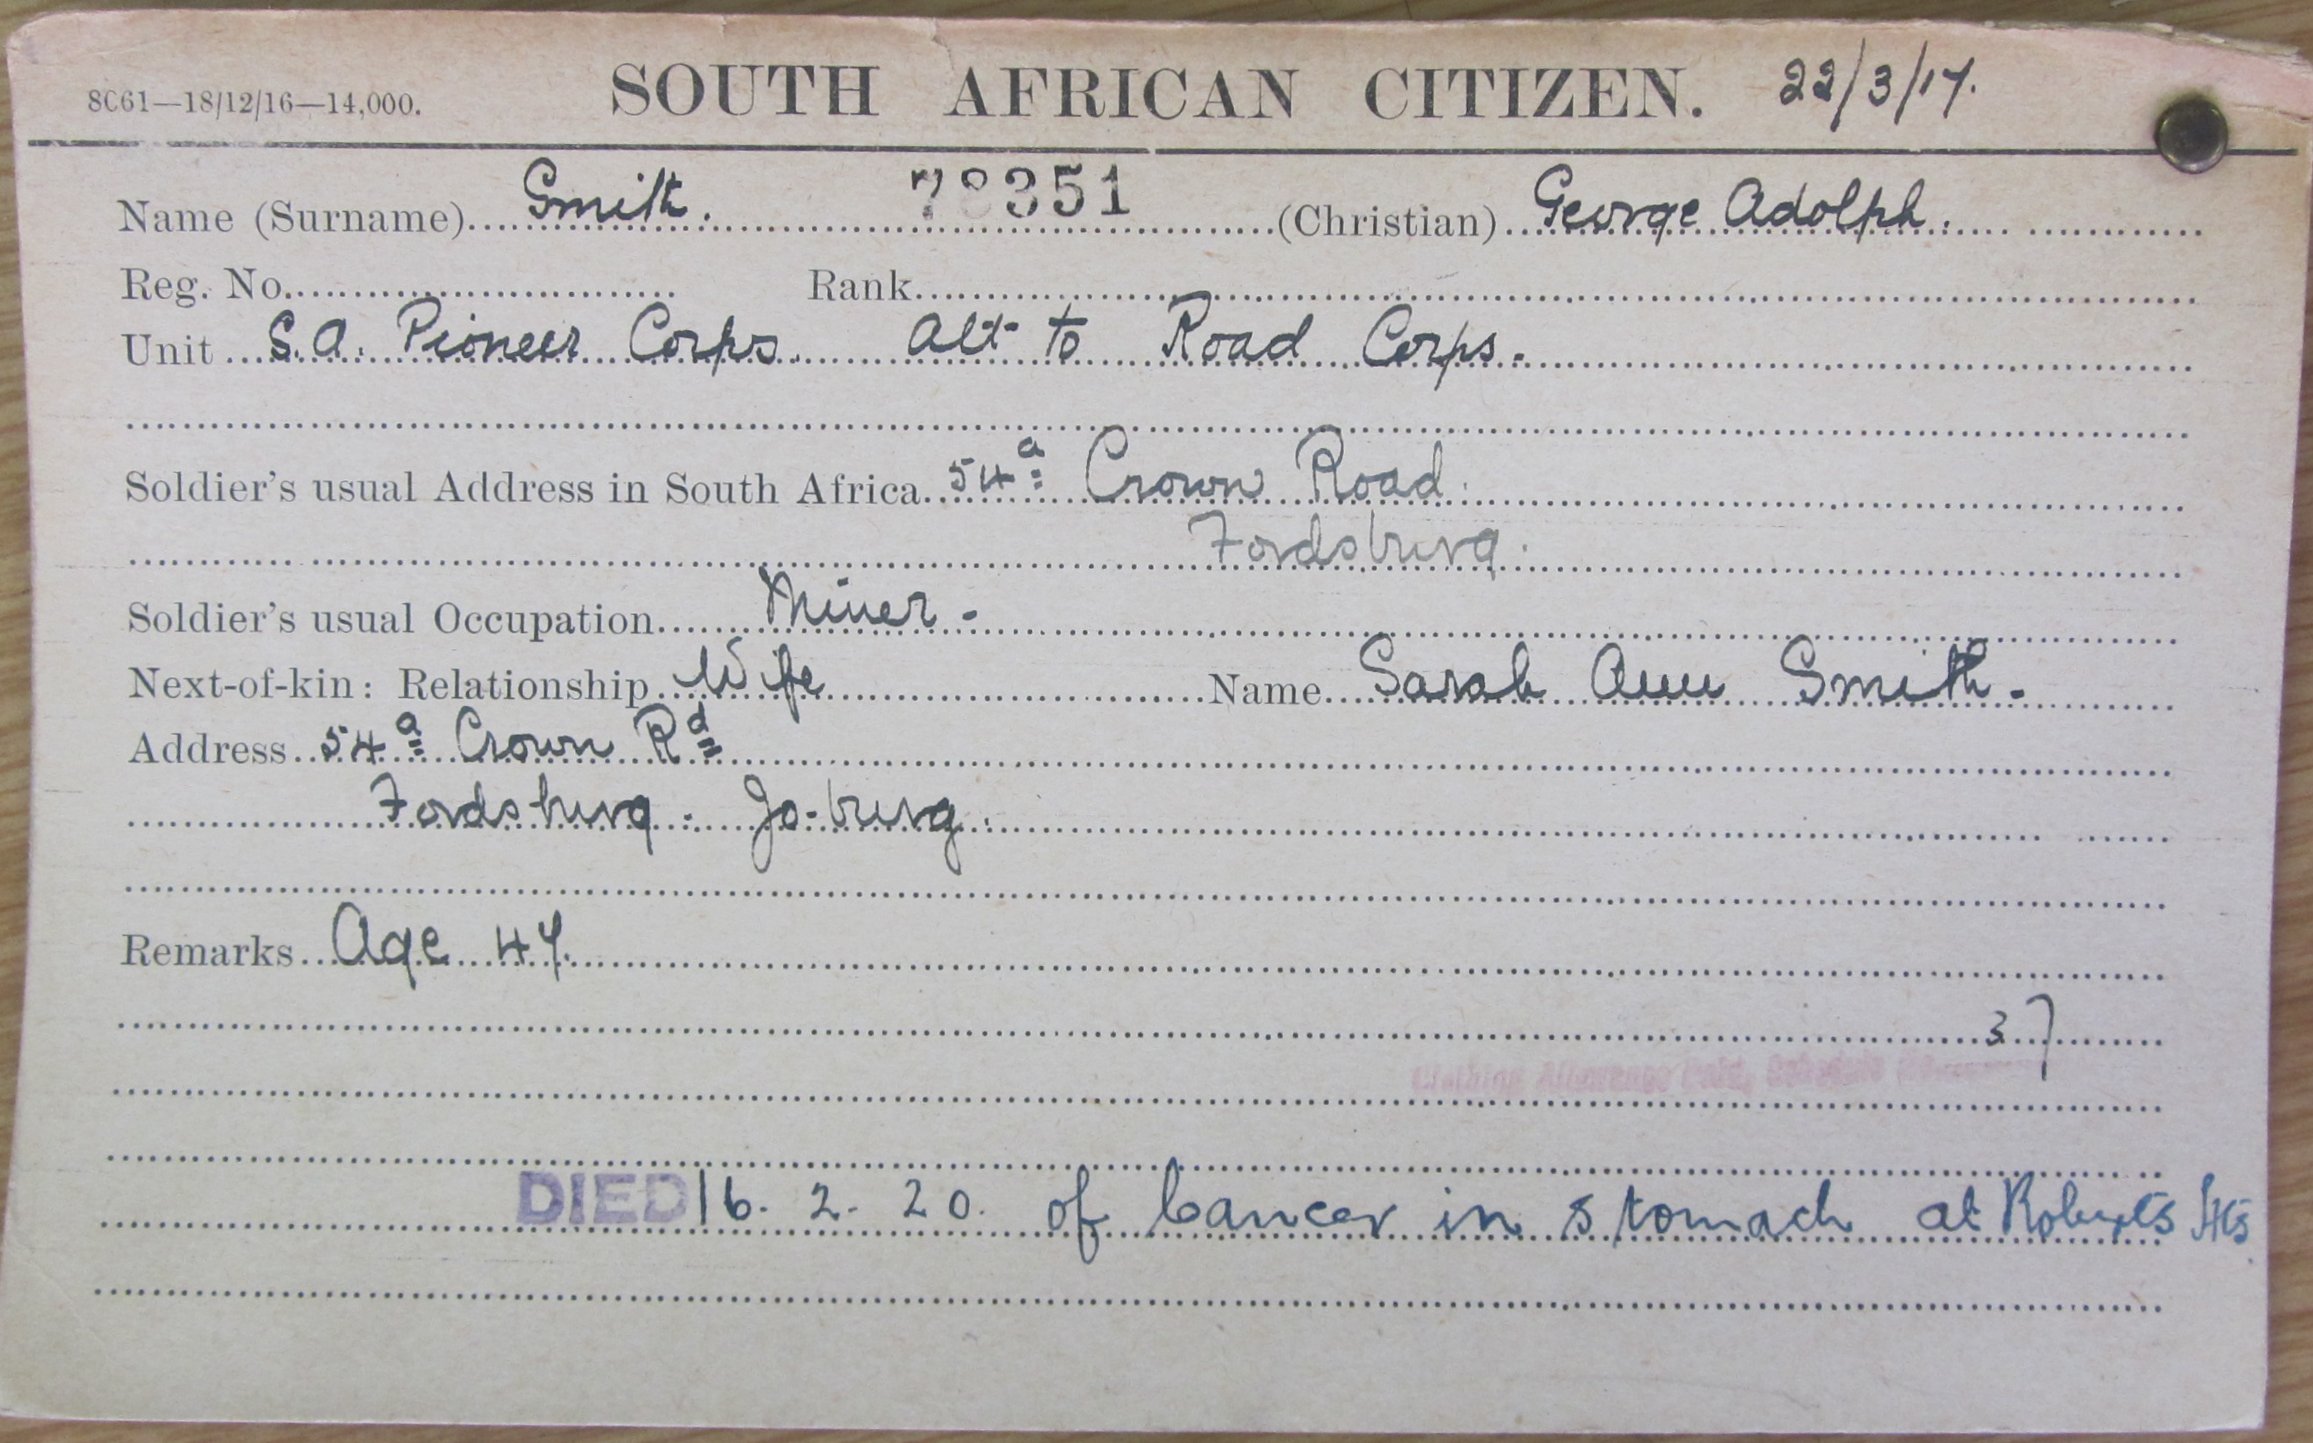 8C61—18/12/16—14,000. SOUTH AFRICAN CITIZEN. 22/3/17.
Name (Surname) Smith. 78351 (Christian) George Adolph.
Reg. No. Rank
Unit S.A. Pioneer Corps. Att to Road Corps.
Soldier's usual Address in South Africa 54a Crown Road.
Fordsburg.
Soldier's usual Occupation Miner -
Next-of-kin: Relationship Wife Name Sarah Ann Smith -
Address 54a Crown Rd
Fordsburg. Jo-burg.
Remarks Age 47.
37
Clothing Allowance Paid,
DIED 16. 2. 20. of Cancer in stomach at Roberts Hts